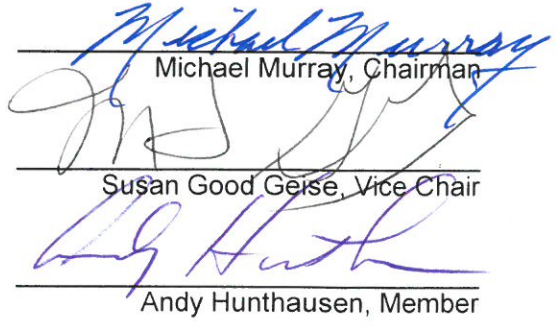 Michael Murray
Michael Murray, Chairman
Susan Good Geise, Vice Chair
Andy Hunthausen, Member